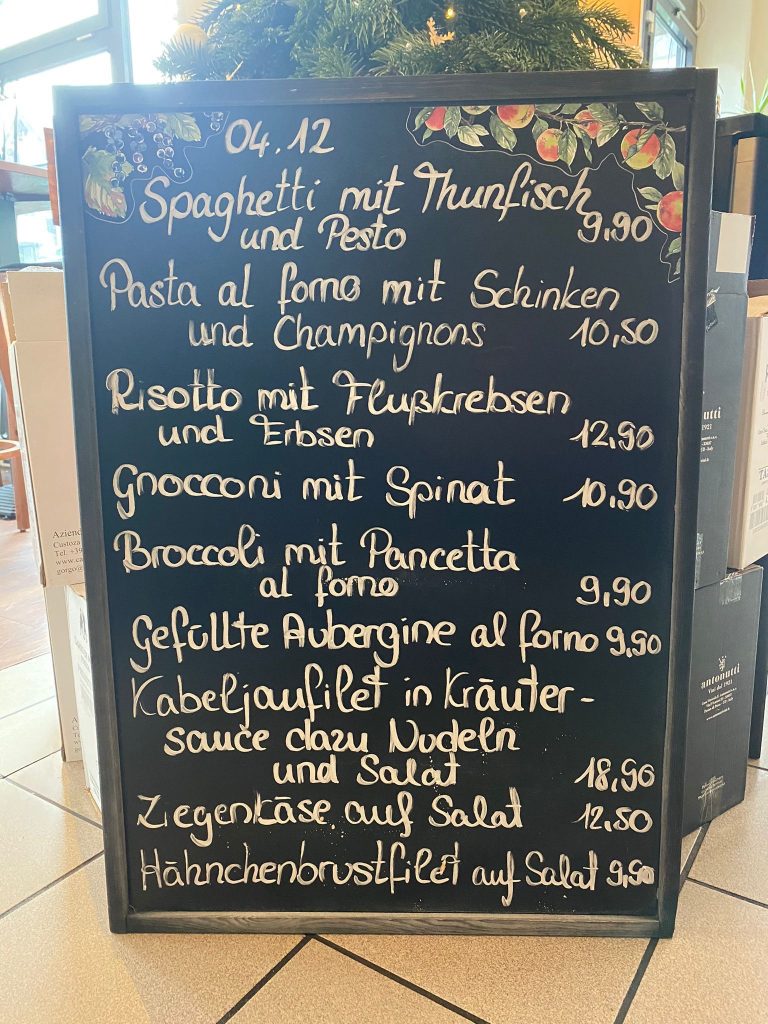 04.12
Spaghetti mit Thunfisch
und Pesto 9,90
Pasta al forno mit Schinken
und Champignons 10,50
Risotto mit Flußkrebsen
und Erbsen 12,90
Gnocconi mit Spinat 10,90
Broccoli mit Pancetta
al forno 9,90
Gefüllte Aubergine al forno 9,90
Kabeljaufilet in Kräuter-
sauce dazu Nudeln
und Salat 18,90
Ziegenkäse auf Salat 12,50
Hähnchenbrustfilet auf Salat 9,90
Azien
Custoza
Tel. +39
www.ca
gorgo@
antonutti
Vini dal 1921